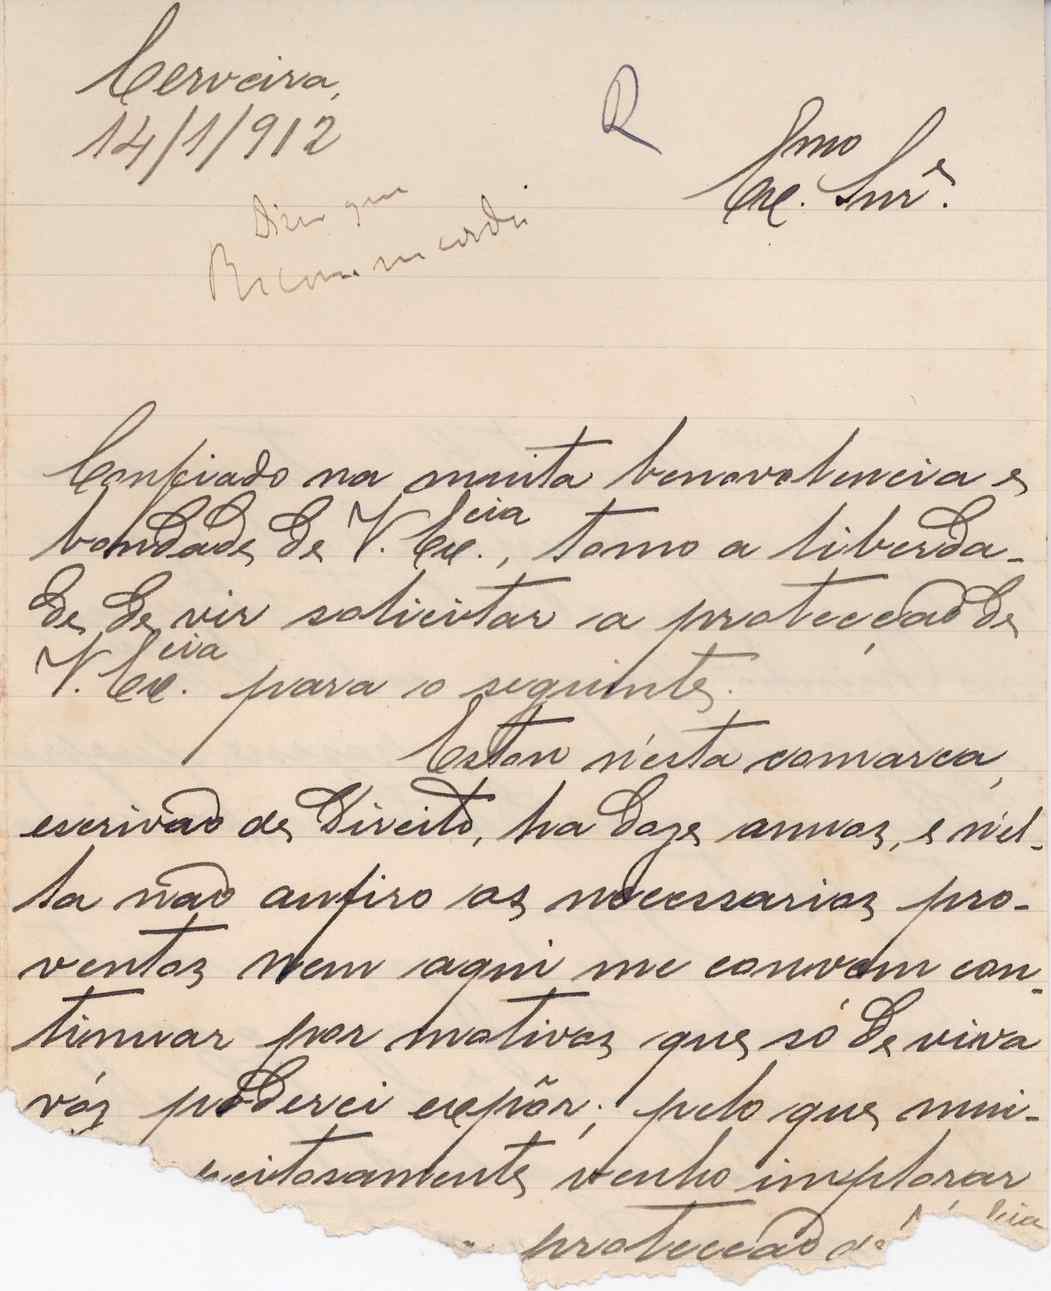 Cerveira,
14/1/912
R
Exmo. Snr.
Dizer que
Recommendei
Confiado na muita benevolencia e
bondade de V. Excia., tomo a liberda-
de de vir solicitar a protecção de
V. Excia. para o seguinte.
Estou n'esta comarca,
escrivão de Direito, ha doze annos, e n'el-
la não aufiro os necessarios pro-
ventos nem aqui me convem con-
tinuar por motivos que só de viva
vóz poderei expôr; pelo que mui-
peitosamente venho implorar
protecção de